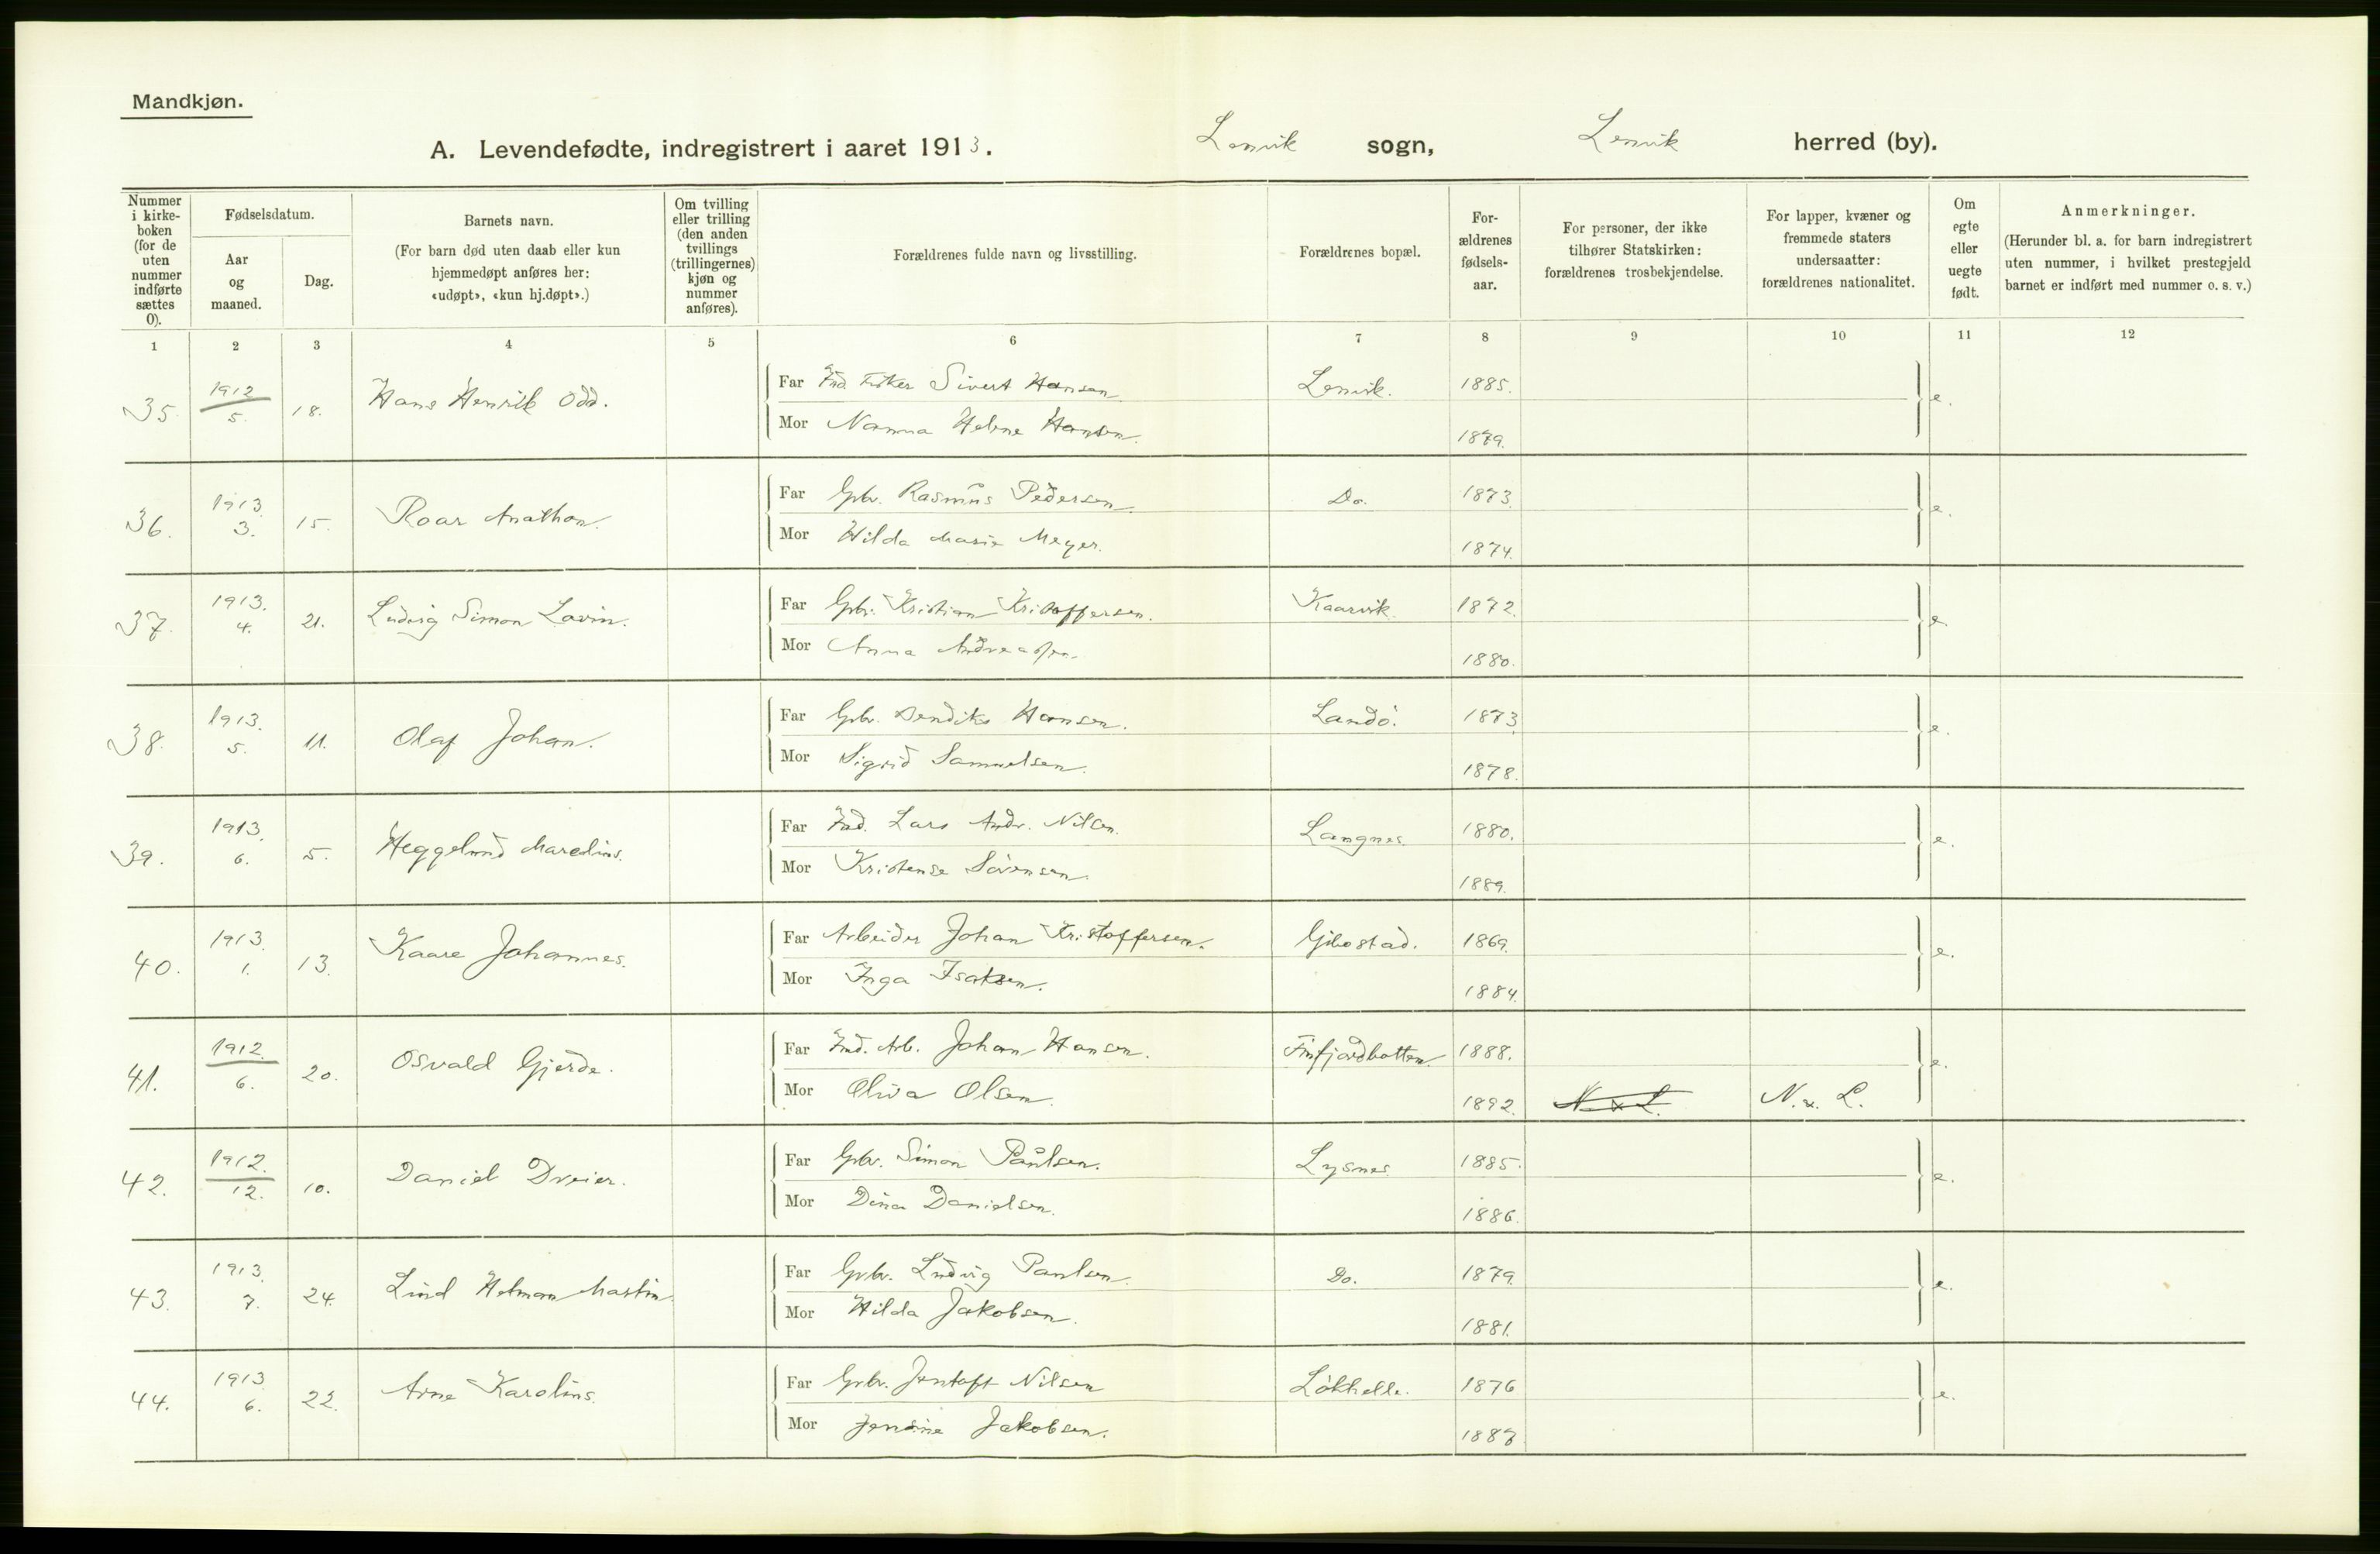 Mandkjøn.
A. Levendefødte, indregistrert i aaret 1913. Lenvik sogn, Lenvik herred (by).
Nummer i kirke-boken (for de uten nummer indførte sættes 0).
Fødselsdatum.
Aar og maaned.
Dag.
Barnets navn.
(For barn død uten daab eller kun hjemmedøpt anføres her: «udøpt», «kun hj.døpt».)
Om tvilling eller trilling (den anden tvillings (trillingernes) kjøn og nummer anføres).
Forældrenes fulde navn og livsstilling.
Forældrenes bopæl.
For-ældrenes fødsels-aar.
For personer, der ikke tilhører Statskirken: forældrenes trosbekjendelse.
For lapper, kvæner og fremmede staters undersaatter: forældrenes nationalitet.
Om egte eller uegte født.
Anmerkninger.
(Herunder bl. a. for barn indregistrert uten nummer, i hvilket prestegjeld barnet er indført med nummer o. s. v.)
1 2 3 4 5 6 7 8 9 10 11 12
35. 1912 5. 18. Hans Henrik Odd. Far Ind. Fisker Sivert Hansen Lenvik. 1885. e.
Mor Nanna Helene Hansen. 1879.
36. 1913. 3. 15. Roar Anathon. Far Gbr. Rasmus Pedersen. Do. 1873. e.
Mor Hilda Marie Meyer. 1874.
37. 1913. 4. 21. Ludvig Simon Lavin. Far Gbr. Kristian Kristoffersen. Kaarvik. 1872. e.
Mor Anna Andreassen. 1880.
38. 1913. 5. 11. Olaf Johan. Far Gbr. Bendiks Hansen. Landö. 1873. e.
Mor Sigrid Samuelsen. 1878.
39. 1913. 6. 5. Heggelund Marelius. Far Ind. Lars Andr. Nilsen. Langnes. 1880. e.
Mor Kristense Sörensen. 1889.
40. 1913. 1. 13. Kaare Johannes. Far Arbeider Johan Kristoffersen. Gibostad. 1869. e.
Mor Inga Isaksen. 1884.
41. 1912. 6. 20. Osvald Gjerde. Far Ind. Arb. Johan Hansen. Finfjordbotten. 1888. e.
Mor Oliva Olsen. 1892. N. x L. N. x. L.
42. 1912. 12. 10. Daniel Dreier. Far Gbr. Simon Paulsen. Lysnes. 1885. e.
Mor Dina Danielsen. 1886.
43. 1913. 7. 24. Lind Helman Martin. Far Gbr. Ludvig Paulsen. Do. 1879. e.
Mor Hilda Jakobsen. 1881.
44. 1913 6. 22. Arne Karolius. Far Gbr. Jentoft Nilsen Lökhelle. 1876 e.
Mor Jensine Jakobsen.